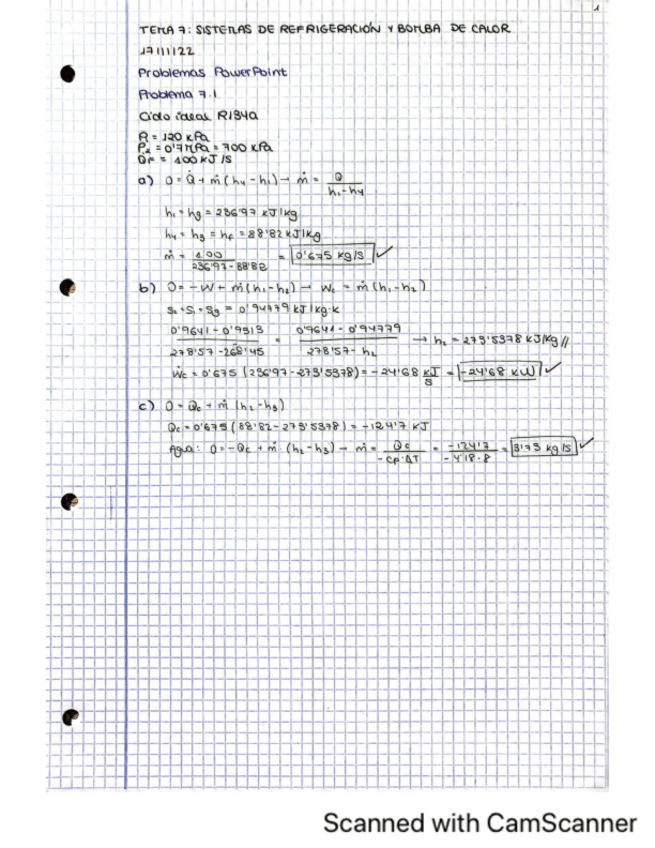 1
TEMA 7: SISTEMAS DE REFRIGERACIÓN Y BOMBA DE CALOR
17/11/22
Problemas PowerPoint
Problema 7.1
Ciclo ideal R134a
P₁ = 120 kPa
P₂ = 0'7 MPa = 700 kPa
QF = 100 kJ/s
a) 0 = Q̇ + ṁ (h₄ - h₁) → ṁ = Q / (h₁ - h₄)
h₁ = hg = 236'97 kJ/kg
h₄ = h₃ = hf = 88'82 kJ/kg
ṁ = 100 / (236'97 - 88'82) = 0'675 kg/s ✓
b) 0 = -W + ṁ (h₁ - h₂) → Wc = ṁ (h₁ - h₂)
S₂ = S₁ = Sg = 0'94779 kJ/kg·K
(0'9641 - 0'9313) / (278'57 - 268'45) = (0'9641 - 0'94779) / (278'57 - h₂) → h₂ = 273'5378 kJ/kg //
Ẇc = 0'675 (236'97 - 273'5378) = -24'68 kJ/s = -24'68 kW ✓
c) 0 = Qc + ṁ (h₂ - h₃)
Qc = 0'675 (88'82 - 273'5378) = -124'7 kJ
Agua: 0 = -Qc + ṁ (h₂ - h₃) → ṁ = Qc / (-CP·ΔT) = -124'7 / (-4'18·8) = 3'73 kg/s ✓
Scanned with CamScanner